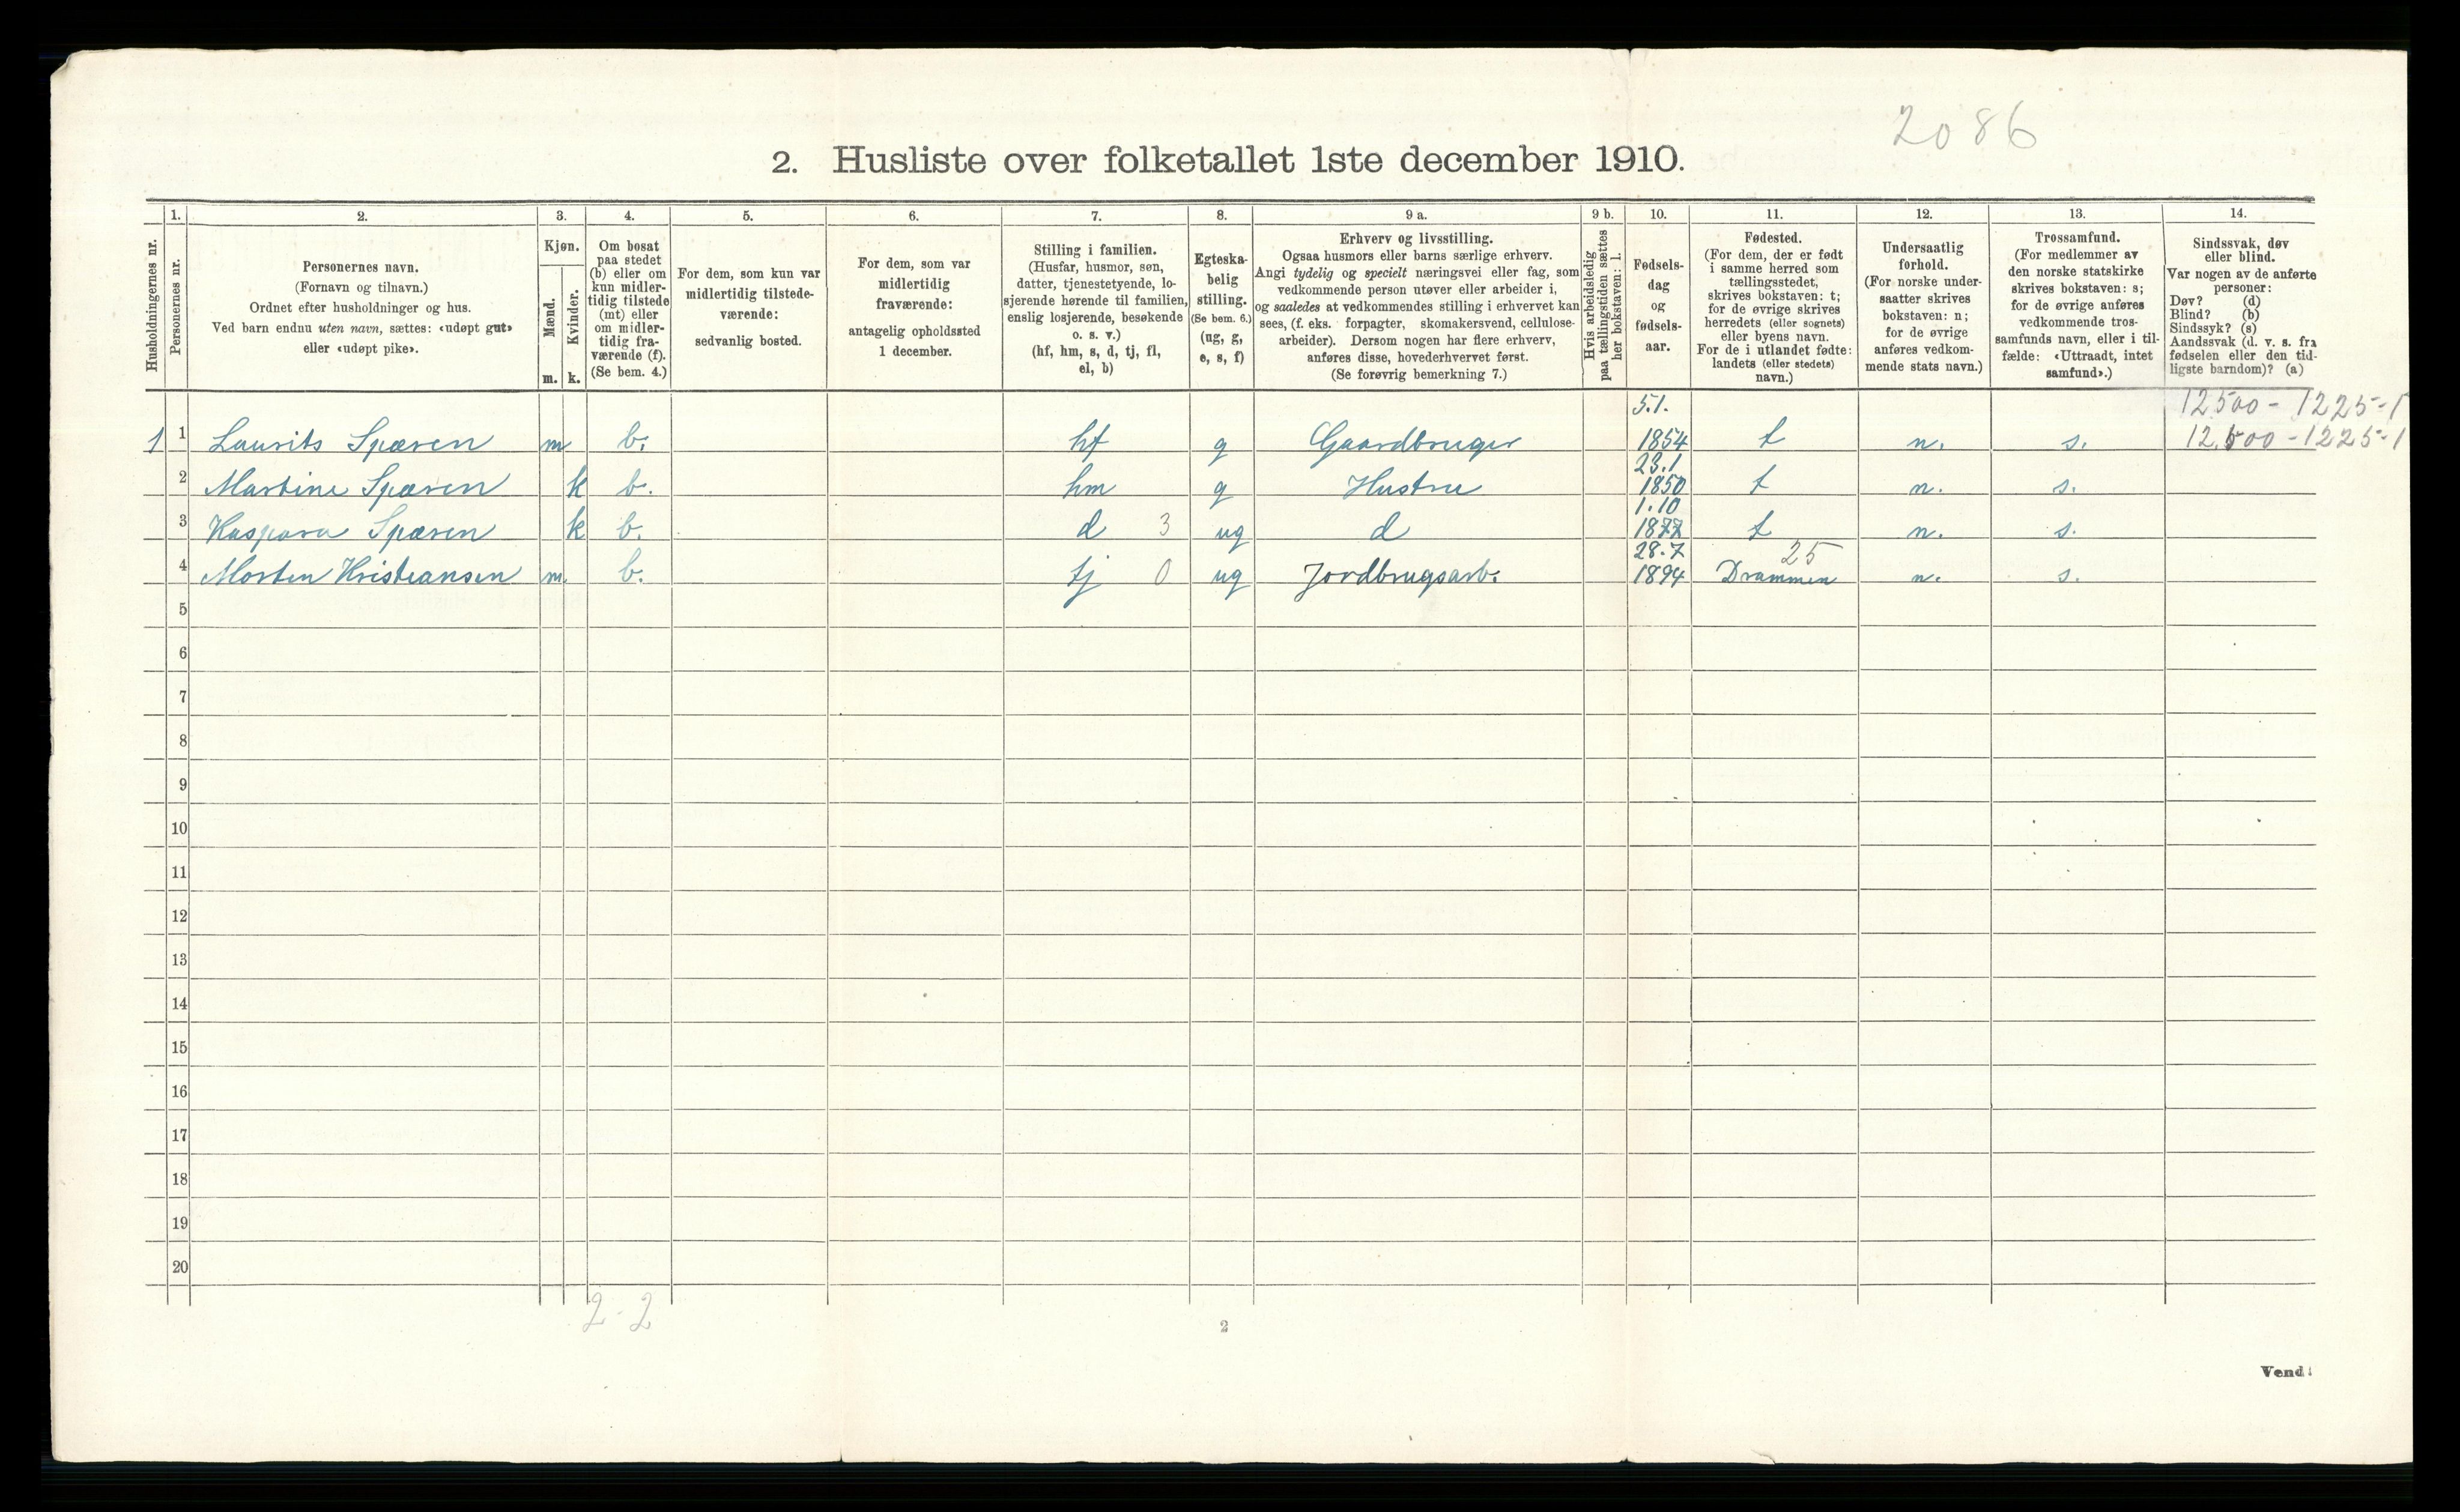 2086
2. Husliste over folketallet 1ste december 1910.
Husholdningernes nr.
1.
Personernes nr.
2.
Personernes navn.
(Fornavn og tilnavn.)
Ordnet efter husholdninger og hus.
Ved barn endnu uten navn, sættes: «udøpt gut»
eller «udøpt pike».
3.
Kjøn.
Mænd.
m.
Kvinder.
k.
4.
Om bosat
paa stedet
(b) eller om
kun midler-
tidig tilstede
(mt) eller
om midler-
tidig fra-
værende (f).
(Se bem. 4.)
5.
For dem, som kun var
midlertidig tilstede-
værende:
sedvanlig bosted.
6.
For dem, som var
midlertidig
fraværende:
antagelig opholdssted
1 december.
7.
Stilling i familien.
(Husfar, husmor, søn,
datter, tjenestetyende, lo-
sjerende hørende til familien,
enslig losjerende, besøkende
o. s. v.)
(hf, hm, s, d, tj, fl,
el, b)
8.
Egteska-
belig
stilling.
(Se bem. 6.)
(ug, g,
e, s, f)
9 a.
Erhverv og livsstilling.
Ogsaa husmors eller barns særlige erhverv.
Angi tydelig og specielt næringsvei eller fag, som
vedkommende person utøver eller arbeider i,
og saaledes at vedkommendes stilling i erhvervet kan
sees, (f. eks. forpagter, skomakersvend, cellulose-
arbeider). Dersom nogen har flere erhverv,
anføres disse, hovederhvervet først.
(Se forøvrig bemerkning 7.)
9 b.
Hvis arbeidsledig
paa tællingstiden sættes
her bokstaven: l.
10.
Fødsels-
dag
og
fødsels-
aar.
11.
Fødested.
(For dem, der er født
i samme herred som
tællingsstedet,
skrives bokstaven: t;
for de øvrige skrives
herredets (eller sognets)
eller byens navn.
For de i utlandet fødte:
landets (eller stedets)
navn.)
12.
Undersaatlig
forhold.
(For norske under-
saatter skrives
bokstaven: n;
for de øvrige
anføres vedkom-
mende stats navn.)
13.
Trossamfund.
(For medlemmer av
den norske statskirke
skrives bokstaven: s;
for de øvrige anføres
vedkommende tros-
samfunds navn, eller i til-
fælde: «Uttraadt, intet
samfund».)
14.
Sindssvak, døv
eller blind.
Var nogen av de anførte
personer:
Døv? (d)
Blind? (b)
Sindssyk? (s)
Aandssvak (d. v. s. fra
fødselen eller den tid-
ligste barndom)? (a)
5.1. 12500 - 1225-1
1 1 Laurits Spæren m b. hf g Gaardbruger 1854 t n. s. 12.500 - 1225-1
23.1
2 Martine Spæren k b. hm g Hustru 1850 t n. s.
1.10
3 Kaspara Spæren k b. d 3 ug d 1877 t n. s.
28.7 25
4 Morten Kristiansen m. b. tj 0 ug Jordbrugsarb. 1894 Drammen n. s.
5
6
7
8
9
10
11
12
13
14
15
16
17
18
19
20
2-2
2
Vend!